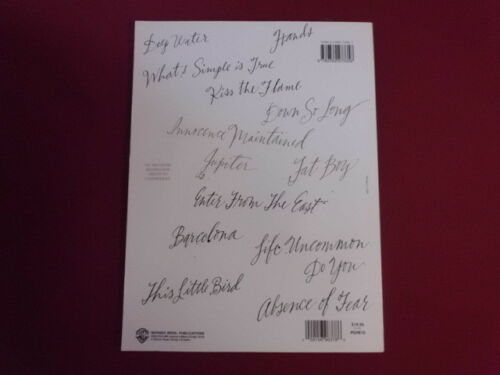 Deep Water
Hands
What's Simple is True
Kiss the Flame
Down So Long
Innocence Maintained
Jupiter
Fat Boy
Enter From The East
Barcelona
Life Uncommon
Do You
This Little Bird
Absence of Fear
WARNER BROS. PUBLICATIONS